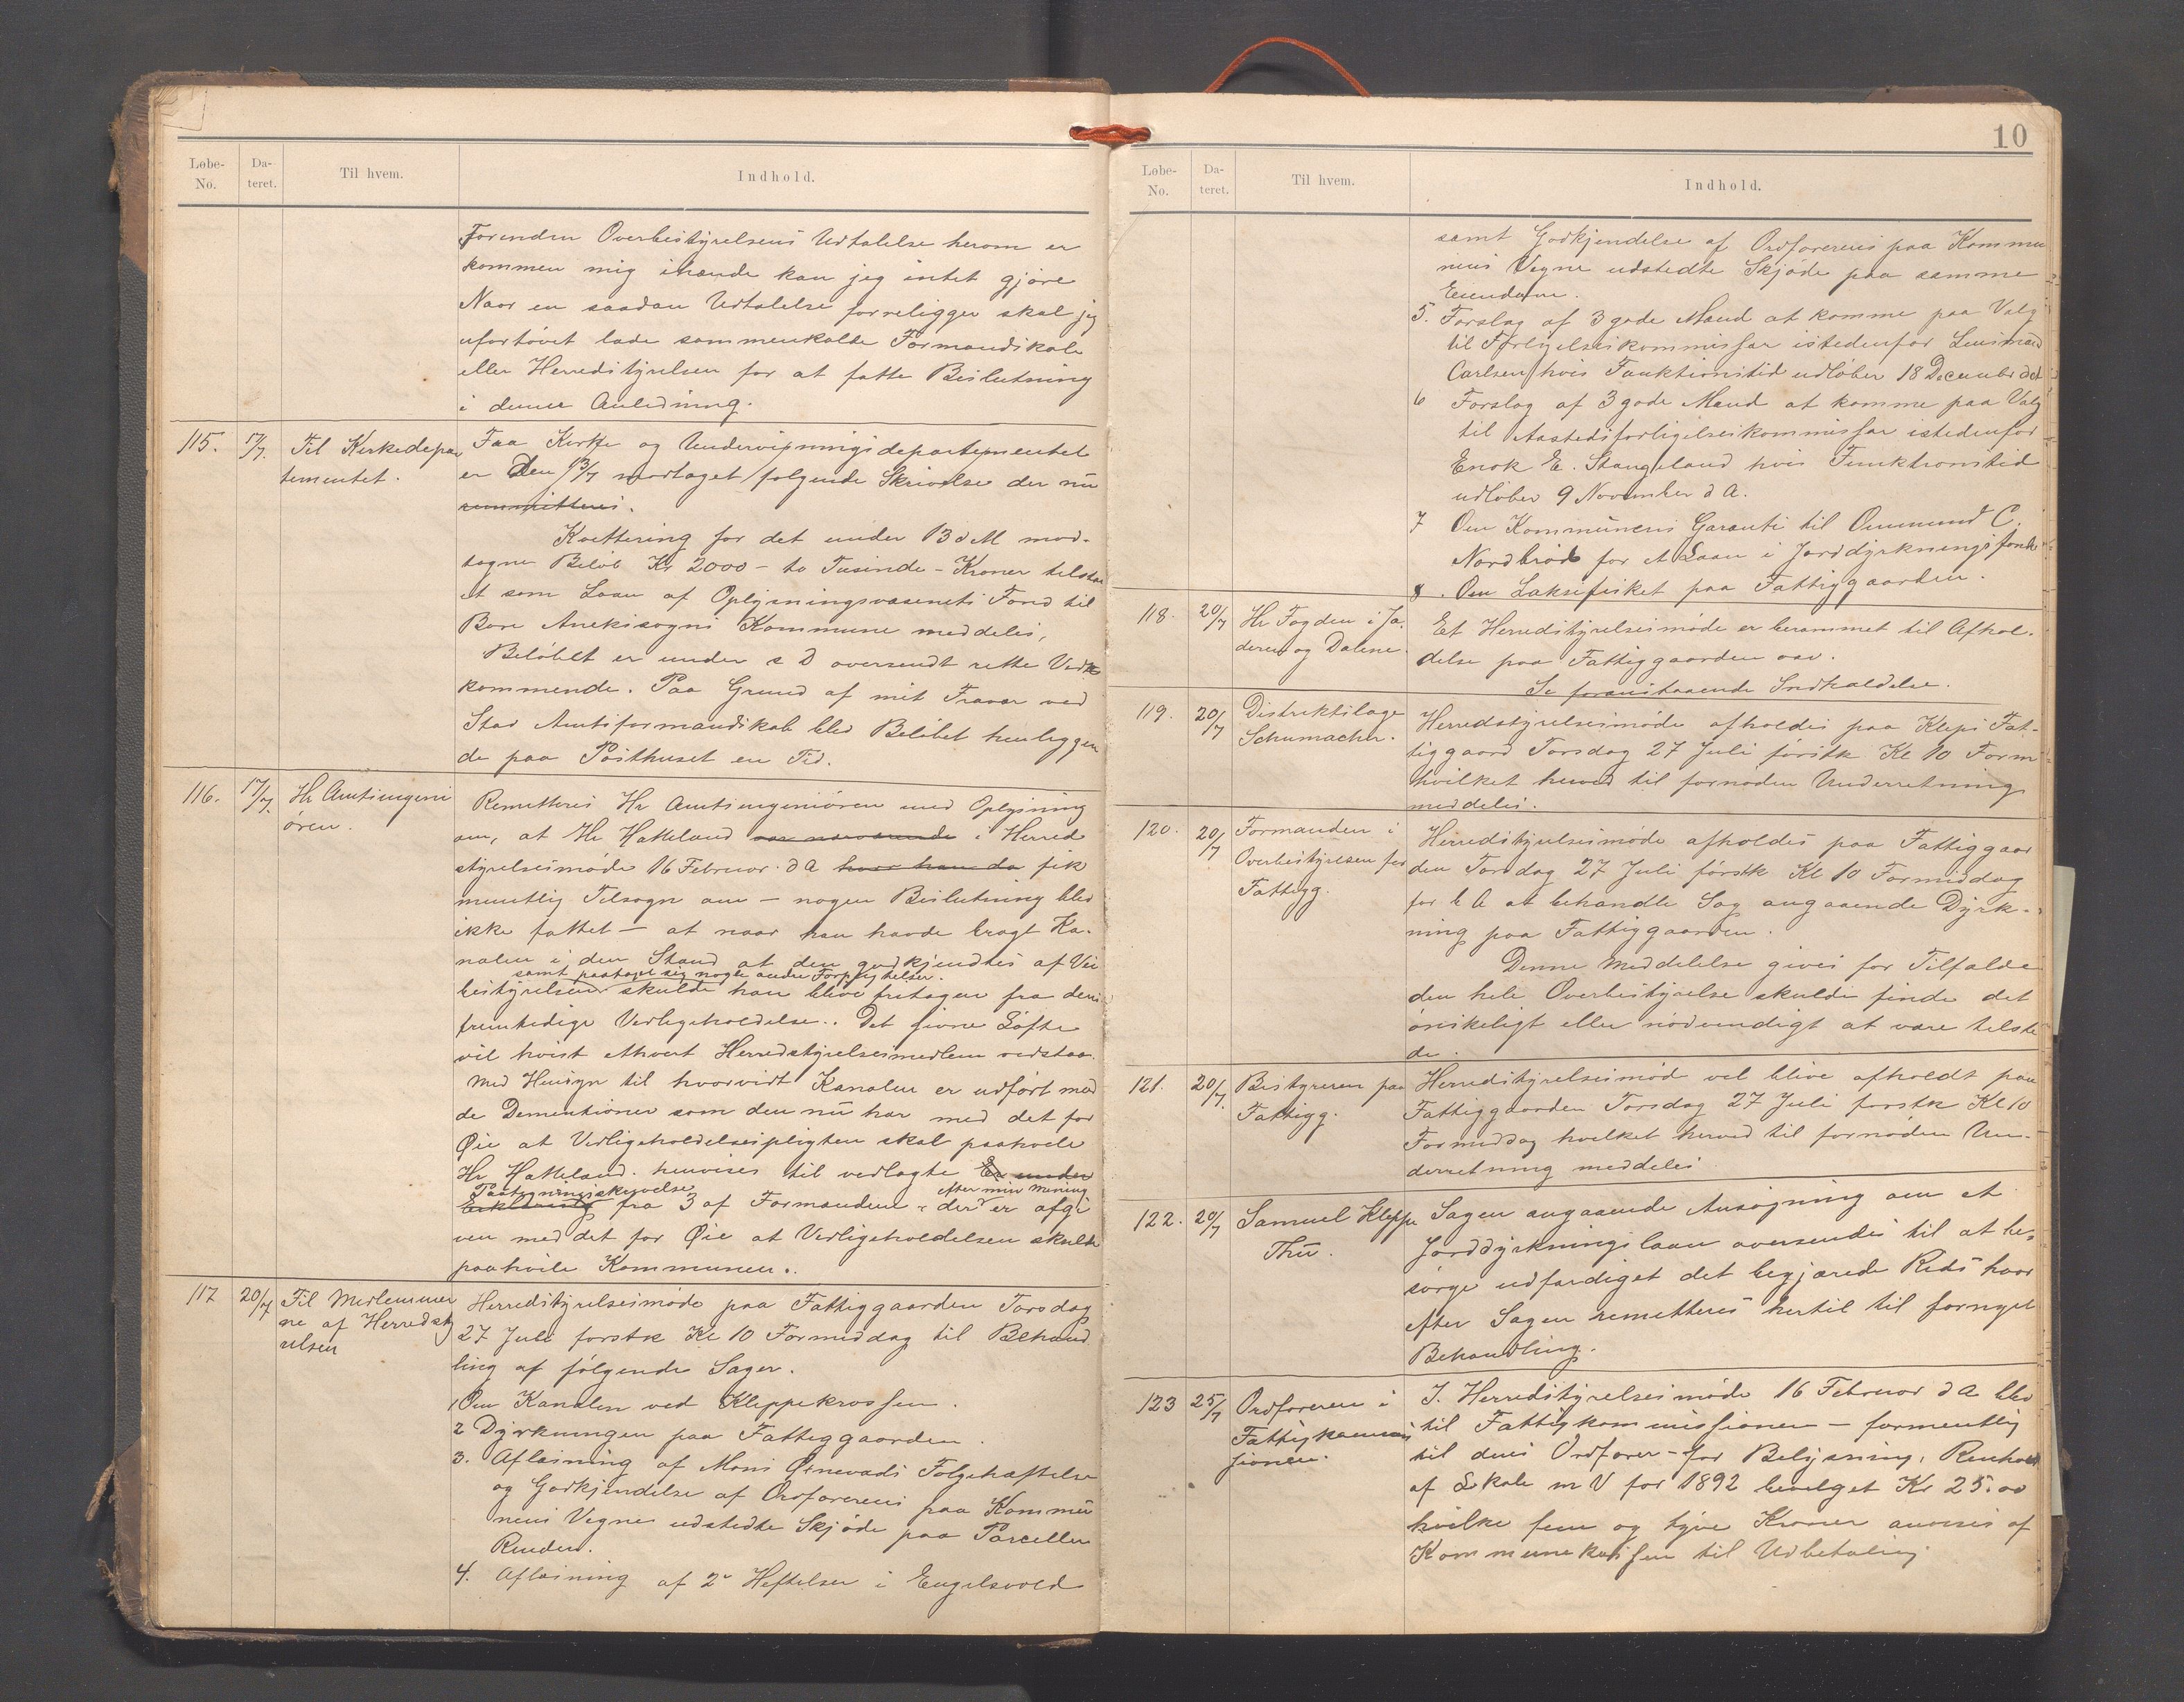 Løbe-
No.
Da-
teret.
Til hvem.
Indhold.
Forinden Overbestyrelsens Udtalelse herom er
kommen mig ihænde kan jeg intet gjøre
Naar en saadan Udtalelse foreligger skal jeg
ufortøvet lade sammenkalde Formandskab
eller Herredstyrelsen for at fatte Beslutning
i denne Anledning.
115. 17/7. Til Kirkedepar
tementet.
Fra Kirke og Undervisningsdepartementet
er Den 13/7 modtaget følgende Skrivelse der nu
remitteres.
Kvittering for det under 13 d M mod-
tagne Beløb Kr 2000 - to Tusinde - Kroner tilstaa
et som Laan af Oplysningsvæsenets Fond til
Bore Anekssogns Kommune meddeles,
Beløbet er under s D oversendt rette Vedk
kommende. Paa Grund af mit Fravær ved
Stav Amtsformandskab blev Beløbet henliggen
de paa Posthuset en Tid.
116. 17/7. Hr Amtsingeni
øren.
Remitteres Hr Amtsingeniøren med Oplysning
om, at Hr Hatteland var nærværende i Herred
styrelsesmøde 16 Februar d A hvor han da fik
mundtlig Tilsagn om - nogen Beslutning blev
ikke fattet - at naar han havde bragt Ka-
nalen i den Stand at den godkjendtes af Vei
samt paatage sig nogle andre Forpligtelser.
bestyrelsen skulde han blive fritagen fra dens
fremtidige Vedligeholdelse. Det givne Løfte
vil hvist ethvert Herredstyrelsesmedlem vedstaa.
Med Hensyn til hvorvidt Kanalen er udført med
de Dementioner som den nu har med det for
Øie at Vedligeholdelsespligten skal paahvile
Hr Hatteland henvises til vedlagte En under
Paategningsskrivelse efter min Mening
Erklæring fra 3 af Formændene der er afgi
ven med det for Øie at Vedligeholdelsen skulde
paahvile Kommunen.
117 20/7 Til Medlemmer
ne af Herredsty
relsen
Herredstyrelsesmøde paa Fattiggaarden Torsdag
27 Juli førstk Kl 10 Formiddag til Behand
ling af følgende Sager.
1 Om Kanalen ved Kleppekrossen.
2 Dyrkningen paa Fattiggaarden.
3. Afløsning af Mons Øxnevads Følgehæftelse
og Godkjendelse af Ordførerens paa Kommu
nens Vegne udstedte Skjøde paa Parcellen
Renden.
4. Afløsning af 2de Heftelser i Engelsvold
10
Løbe-
No.
Da-
teret.
Til hvem.
Indhold.
samt Godkjendelse af Ordførerens paa Kommu
nens Vegne udstedte Skjøde paa samme
Eiendom.
5. Forslag af 3 gode Mænd at komme paa Valg
til Forligelseskommissær istedenfor Lensmand
Carlsen hvis Funktionstid udløber 18 December dA
6 Forslag af 3 gode Mænd at komme paa Valg
til Aastedsforligelseskommissær istedenfor
Enok E. Stangeland hvis Funktionstid
udløber 9 November d A.
7 Om Kommunens Garanti til Ommund C.
Nordbrød for et Laan i Jorddyrkningsfondet
8. Om Laksefisket paa Fattiggaarden.
118. 20/7 Hr Fogden i Jæ-
deren og Dalene.
Et Herredstyrelsesmøde er berammet til Afhol-
delse paa Fattiggaarden osv.
Se foranstaaende Indkaldelse.
119. 20/7 Distriktslæge
Schumacher.
Herredstyrelsesmøde afholdes paa Kleps Fat-
tiggaard Torsdag 27 Juli førstk Kl 10 Form
hvilket herved til fornøden Underretning
meddeles.
120. 20/7 Formanden i
Overbestyrelsen for
Fattigg.
Herredstyrelsesmøde afholdes paa Fattiggaar
den Torsdag 27 Juli førstk Kl 10 Formiddag
for b A at behandle Sag angaaende Dyrk-
ning paa Fattiggaarden.
Denne Meddelelse gives for Tilfælde
den hele Overbestyrelse skulde finde det
ønskeligt eller nødvendigt at være tilste
de.
121. 20/7. Bestyreren paa
Fattigg.
Herredstyrelsesmød vil blive afholdt paa
Fattiggaarden Torsdag 27 Juli førstk Kl 10
Formiddag hvilket herved til fornøden Un-
derretning meddeles
122. 20/7 Samuel Kleppe
Thu.
Sagen angaaende Ansøgning om et
Jorddyrkningslaan oversendes til at be-
sørge udfærdiget det begjærede Rids hvor
efter Sagen remitteres hertil til fornyet
Behandling.
123 25/7 Ordføreren i
Fattigkommis
sionen.
I. Herredstyrelsesmøde 16 Februar d A blev
til Fattigkommissionen - formentlig
til dens Ordfører - for Belysning, Renhold
af Lokale m V for 1892 bevilget Kr 25.00
hvilke fem og tyve Kroner anvises af
Kommunekassen til Udbetaling